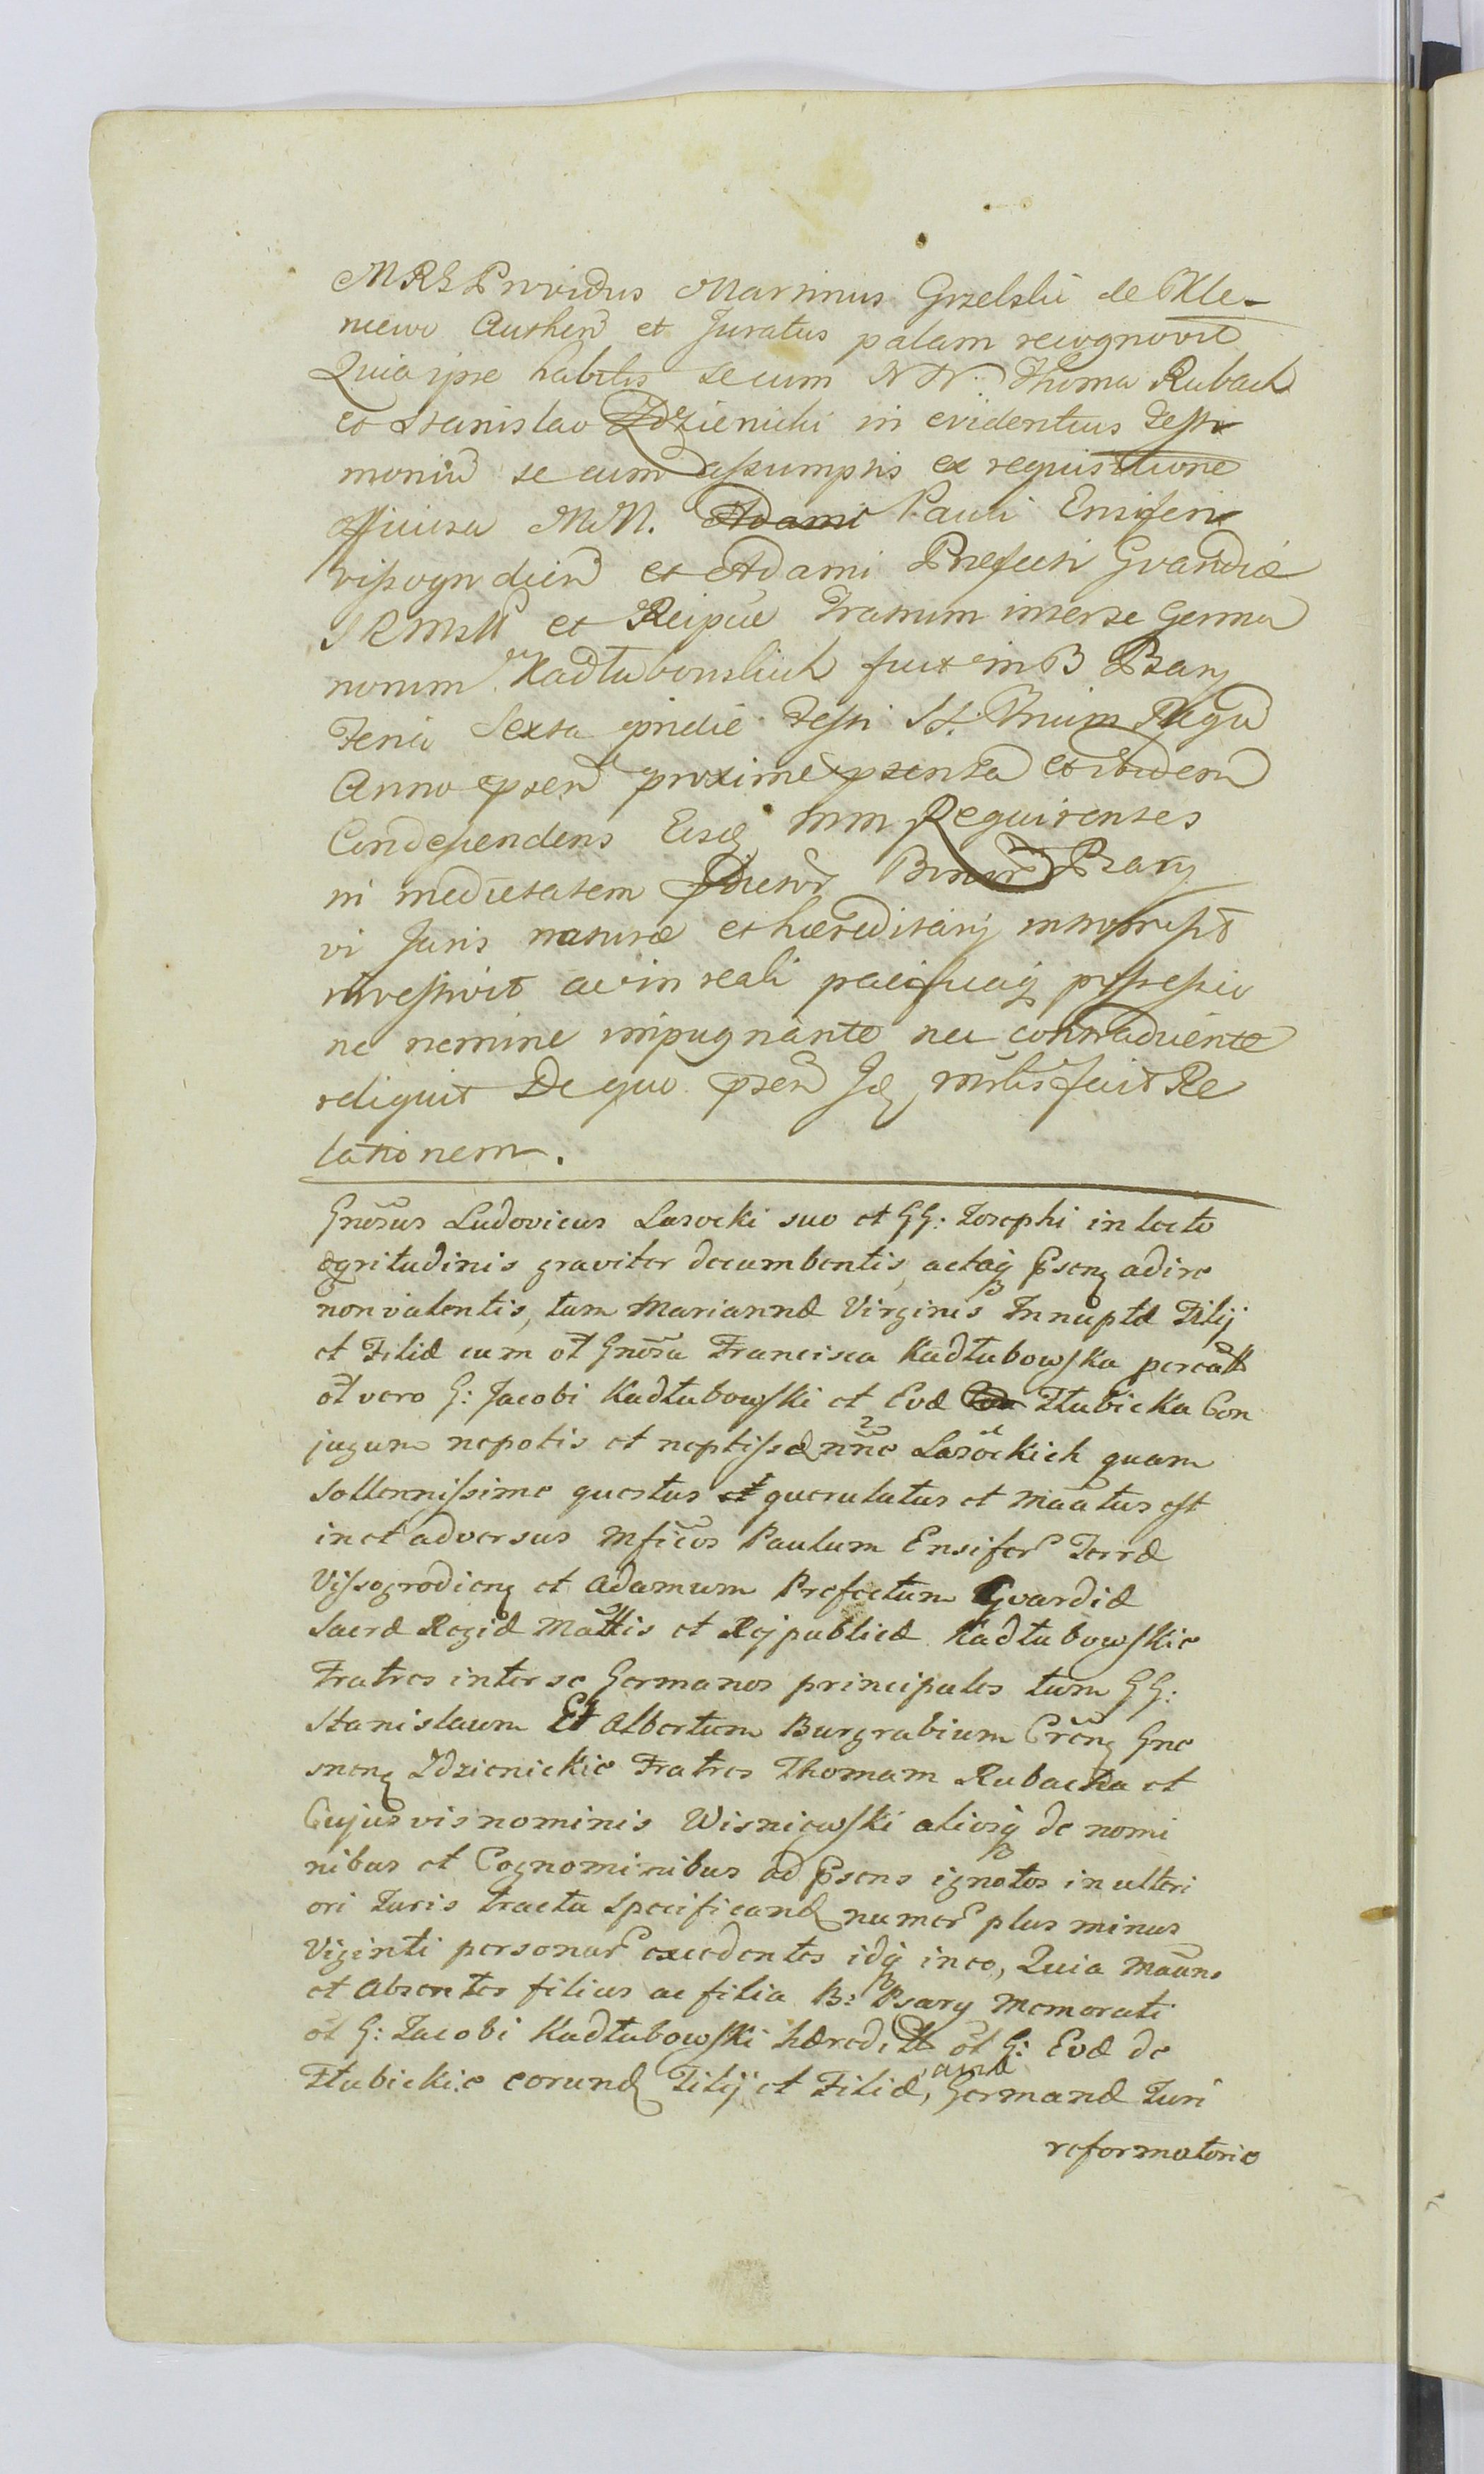 MRS Providus Martinus Grzelski de Kle-
niewo Authen et Juratus palam recognovit
Quia ipse habitis secum NN: Thoma Rubach
et Stanislao Zdzienicki in evidentius Testi
moniu secum assumptis ex requisitione
officiosa MM. Adami Pauli Ensiferi
vissogrodien et Adami Prefecti Gvardiæ
SRMtt et Reipue Fratrum inter se Germa
norum Kadłubowskich fuit in B Psary
Feria Sexta pridie Festi SS. Trium Regu
Anno psen proxime psenta et ibidem
Condescendens Eosq MM Requirentes
in medietatem Bonor Psary
vi Juris naturæ et hæreditarij intromisit
investivit ac in reali pacificaq possessio
ne nemine impugnante nec contradicente
reliquit De quo psen Jq ministr fecit Re
lationem.
Gnosus Ludovicus Lasocki suo et GG: Josephi in lecto
ægritudinis graviter decumbentis, actaq Psenz adire
non valentis, tum Mariannæ Virginis Innuptæ Filij
et Filiæ cum ol Gnosa Francisca Kadłubowska procātt
ol vero G: Jacobi Kadłubowski et Evæ Tłubicka Con
jugum nepotis et neptissæ nūnc Lasockich quam
sollennissime questus et querulatus et Māatus est
in et adversus Mficos Paulum Ensifer Terræ
Vissogrodienz et Adamum Prefectum Gvardiæ
Sacræ Regiæ Mattis et Rejpublicæ Kadłubowskie
Fratres inter se Germanos principales tum GG:
Stanislaum Et Albertum Burgrabium Crenz Gne
snenz Zdzienickie Fratres Thomam Rubacha et
Cujusvis nominis Wisniewski aliosq de nomi
nibus et Cognominibus ad Psens ignotos in ulteri
ori Juris tractu specificand numer plus minus
Viginti personar excedentes idq in eo, Quia Māns
et Absentes filius ac filia B: Psary memorati
ol G: Jacobi Kadłubowski hæred, tt ol G: Evæ de
Tłubickie eorund Filij et Filiæ, Germanæ Juri
reformatorio